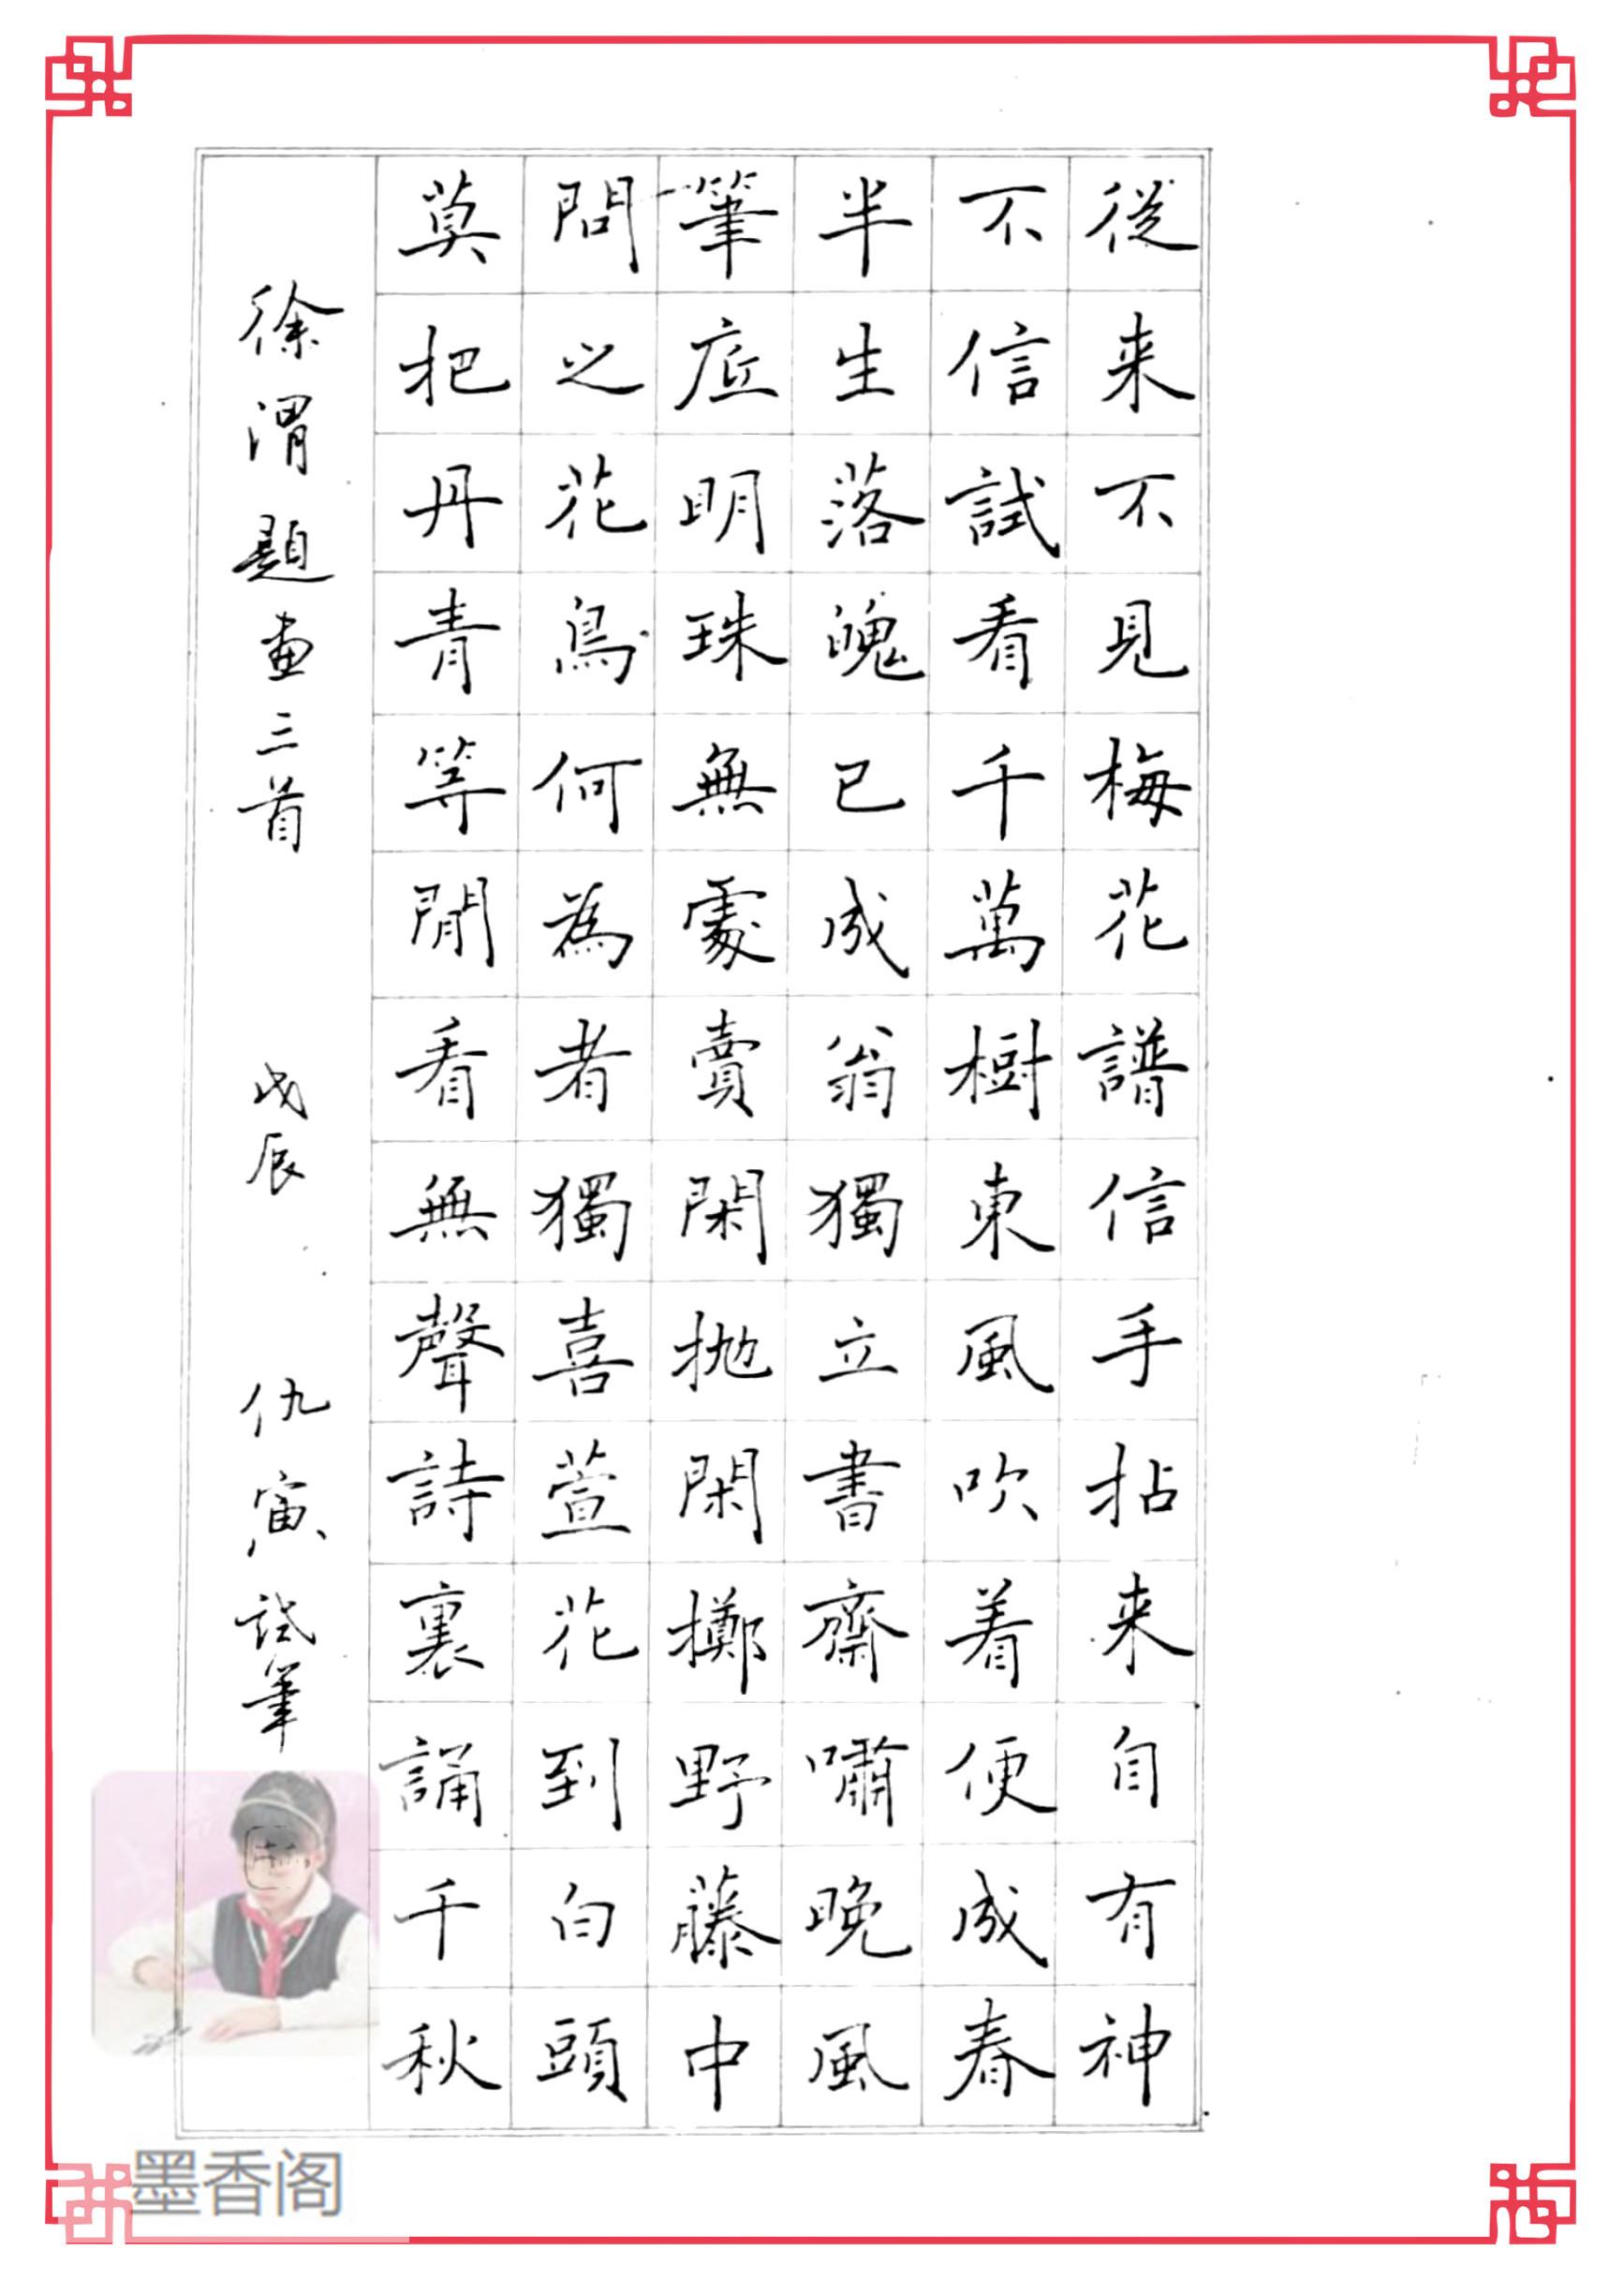 從来不見梅花譜信手拈来自有神
不信試看千萬樹東風吹着便成春
半生落魄已成翁獨立書齋嘯晚風
筆底明珠無處賣閑抛閑擲野藤中
問之花鳥何為者獨喜萱花到白頭
莫把丹青等閒看無聲詩裏誦千秋
徐渭題畫三首 戊辰 仇寅試筆
墨香阁